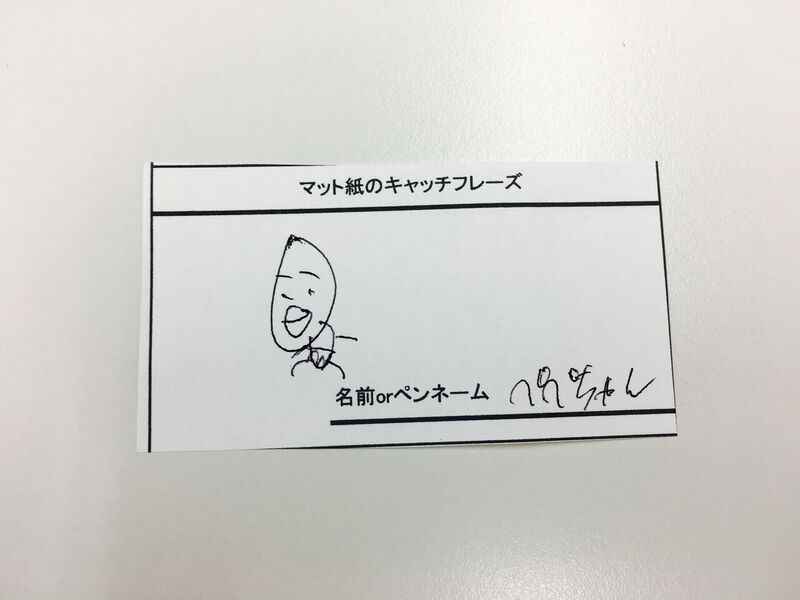 マット紙のキャッチフレーズ
名前orペンネーム ぺぺちゃん